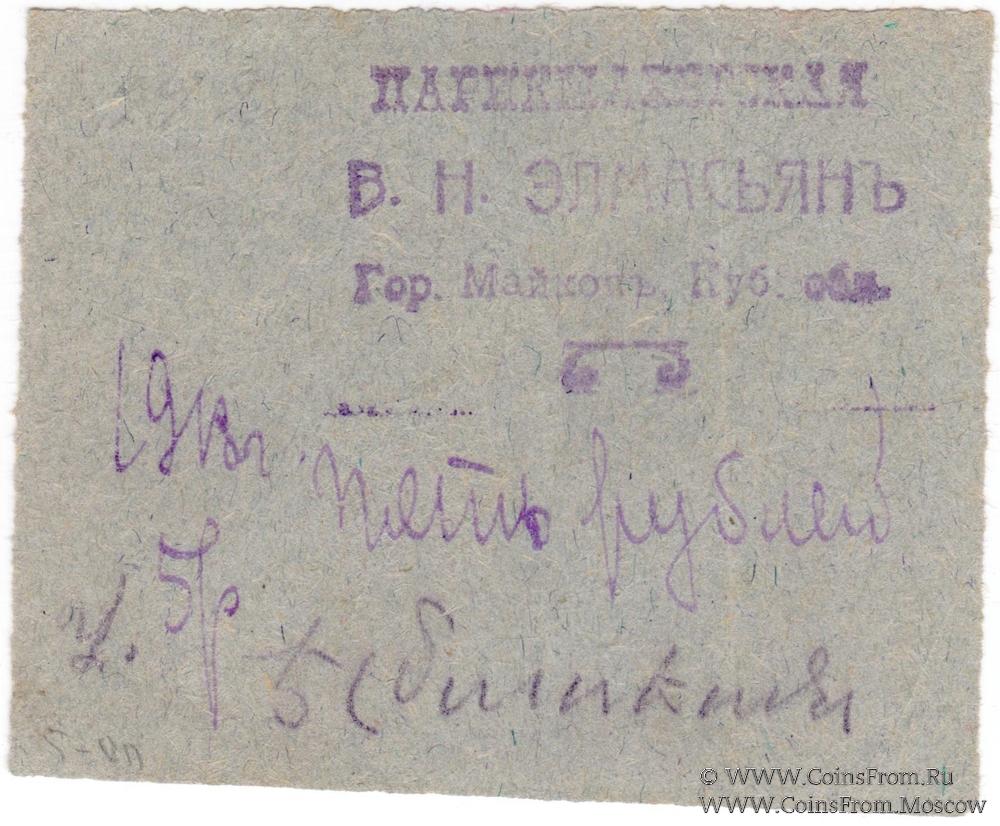 ПАРИКМАХЕРСКАЯ
В. Н. ЭЛМАСЬЯНЪ
Гор. Майкопъ, Куб. обл.
пять рублей
5р
5
5-00
© WWW.CoinsFrom.Ru
WWW.CoinsFrom.Moscow